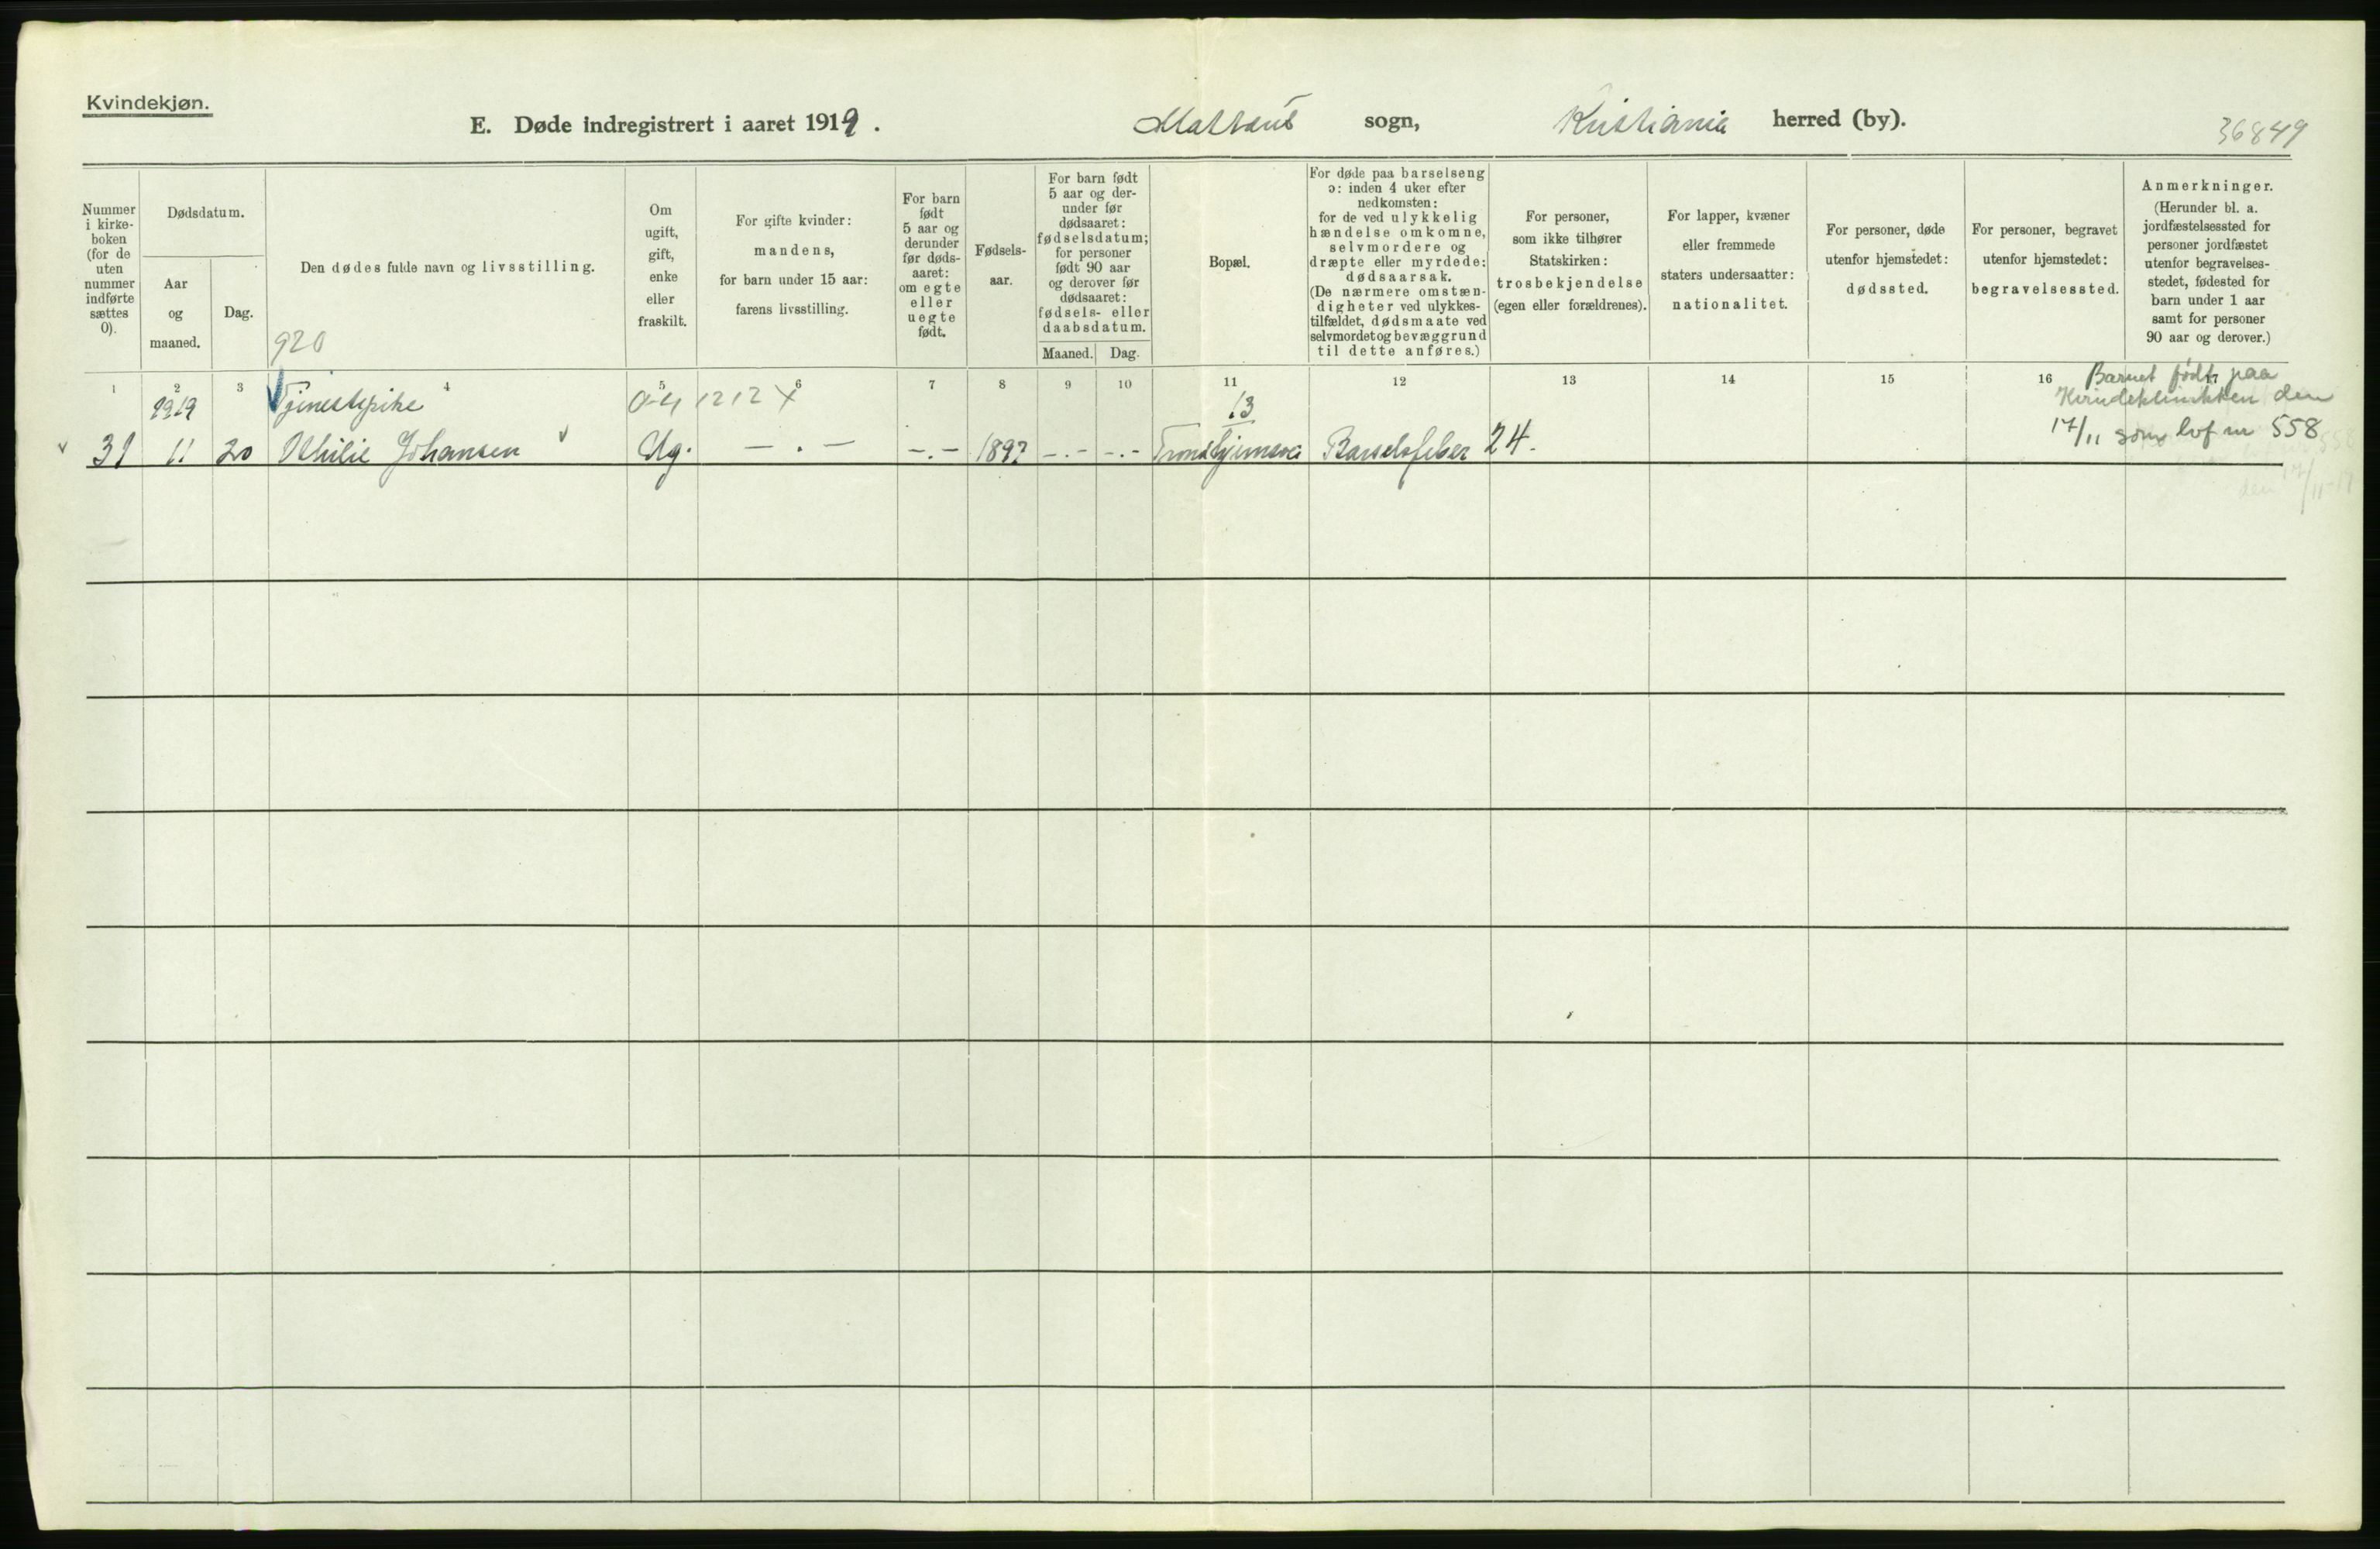 Kvindekjøn.
E. Døde indregistrert i aaret 1919.
Mattæus sogn,
Kristiania herred (by).
36849
Nummer
i kirke-
boken
(for de
uten
nummer
indførte
sættes
0).
Dødsdatum.
Aar
og
maaned.
Dag.
Den dødes fulde navn og livsstilling.
920
Om
ugift,
gift,
enke
eller
fraskilt.
For gifte kvinder:
mandens,
for barn under 15 aar:
farens livsstilling.
For barn
født
5 aar og
derunder
før døds-
aaret:
om egte
eller
uegte
født.
Fødsels-
aar.
For barn født
5 aar og der-
under før
dødsaaret:
fødselsdatum;
for personer
født 90 aar
og derover før
dødsaaret:
fødsels- eller
daabsdatum.
Maaned. Dag.
Bopæl.
For døde paa barselseng
ɔ: inden 4 uker efter
nedkomsten:
for de ved ulykkelig
hændelse omkomne,
selvmordere og
dræpte eller myrdede:
dødsaarsak.
(De nærmere omstæn-
digheter ved ulykkes-
tilfældet, dødsmaate ved
selvmordet og bevæggrund
til dette anføres.)
For personer,
som ikke tilhører
Statskirken:
trosbekjendelse
(egen eller forældrenes).
For lapper, kvæner
eller fremmede
staters undersaatter:
nationalitet.
For personer, døde
utenfor hjemstedet:
dødssted.
For personer, begravet
utenfor hjemstedet:
begravelsessted.
Anmerkninger.
(Herunder bl. a.
jordfæstelsessted for
personer jordfæstet
utenfor begravelses-
stedet, fødested for
barn under 1 aar
samt for personer
90 aar og derover.)
1 2 3 4 5 6 7 8 9 10 11 12 13 14 15 16 17
1919 Tjenestepike 0-4 1212 X 13
31 11 20 Othilie Johansen Ug. — . — -.- 1892 -.- -.- Trondhjemsvei Barselsfeber 24.
Barnet født paa
Kvindeklinikken den
17/11 som lvf nr 558
558
den 17/11-19